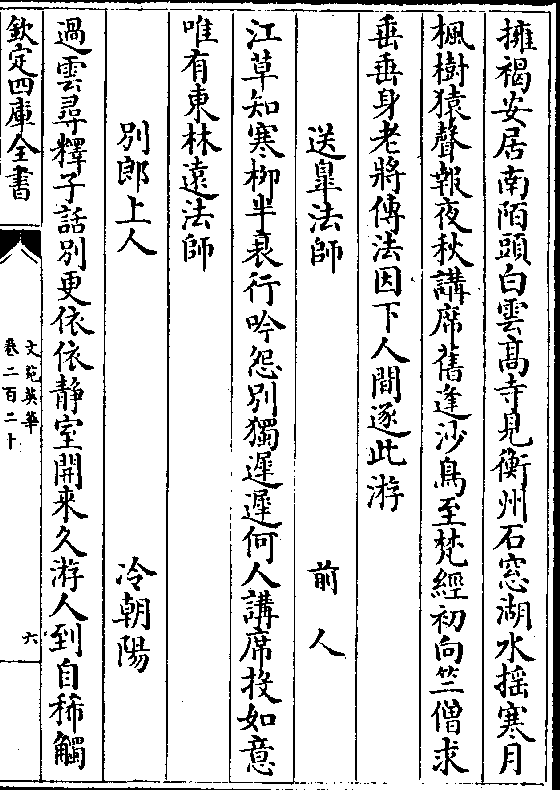 擁褐安居南陌頭白雲髙寺見衡州石窓湖水揺寒月
楓樹猿聲報夜秋講席舊逢沙鳥至梵經初向竺僧求
垂垂身老將傳法因下人間逐此游
送皐法師　前人
江草知寒柳半衰行吟怨別獨遲遲何人講席投如意
唯有東林遠法師
別郎上人　冷朝陽
過雲尋釋子話別更依依静室開來久游人到自稀觸
欽定四庫全書
文苑英華
卷二百二十
六